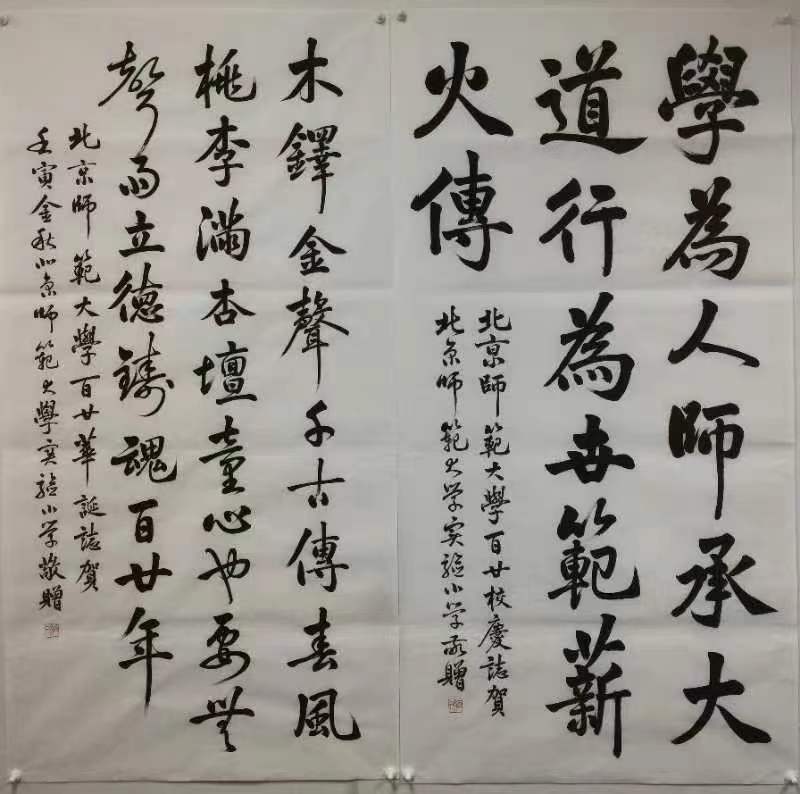 學為人師承大
道行為世範薪
火傳
北京師範大學百廿校慶誌賀
北京師範大学实驗小学敬贈
木鐸金聲千古傳春風
桃李滿杏壇童心也要無
聲雨立德鑄魂百廿年
北京師範大學百廿華誕誌賀
壬寅金秋北京師範大學实驗小学敬贈